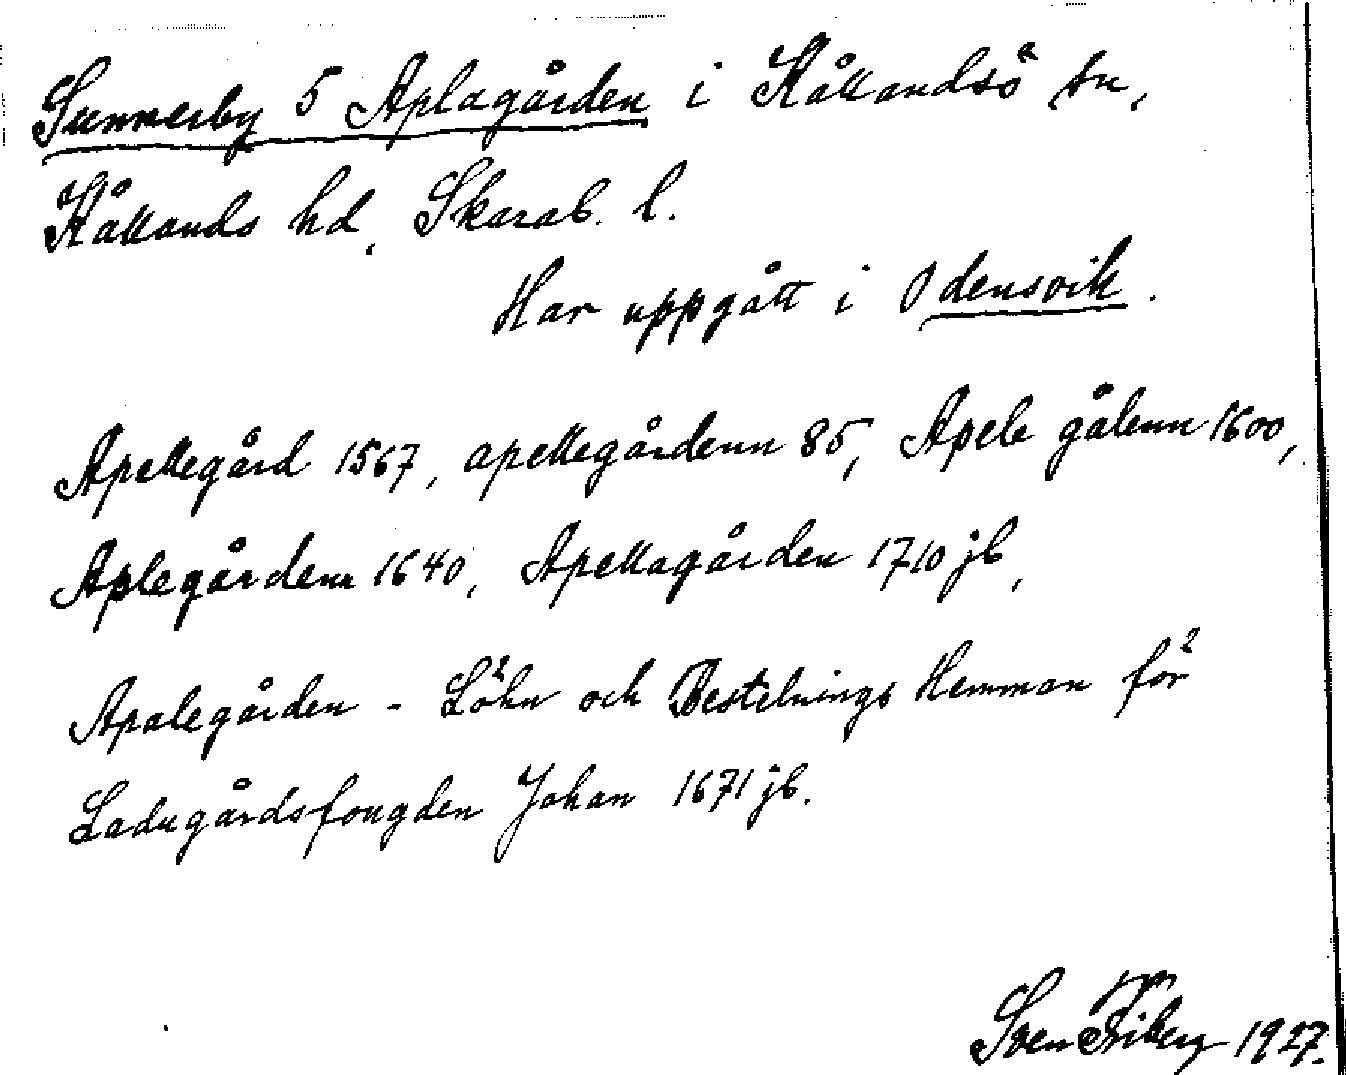 Sunnerby 5 Aplagården i Kållandsö sn,
Kållands hd, Skarab. l.
Har uppgått i Odensvik.
Apellegård 1567, apellegårdenn 85, Apele gålenn 1600,
Aplegårdenn 1640, Apellagården 1710 jb,
Apalegården - Löhn och Bestelnings Hemman för
Ladugårdsfougden Johan 1671 jb.
Sven Friberg 1927.